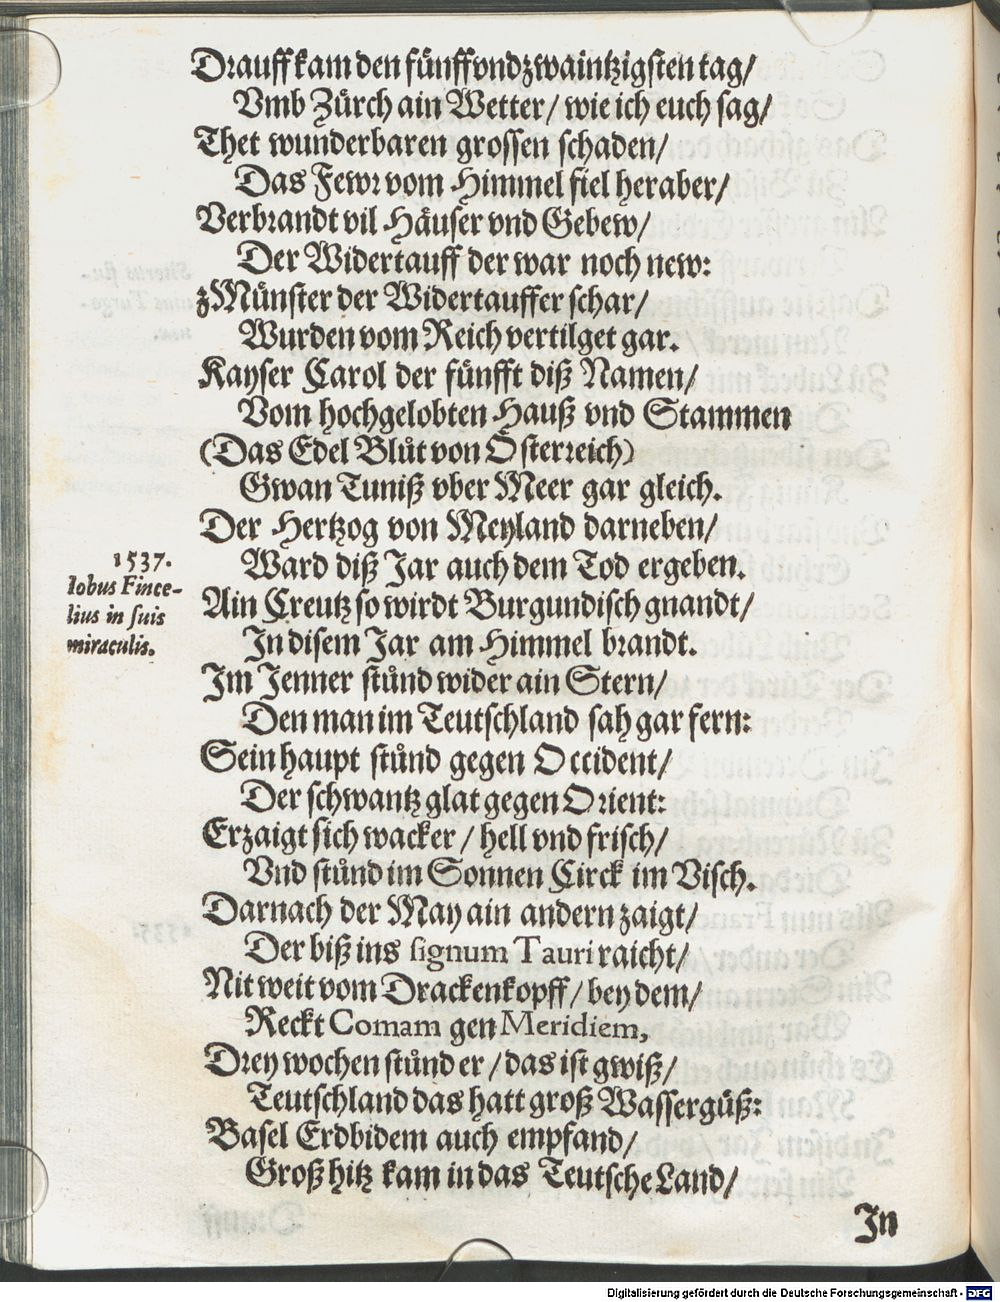 Drauff kam den fünff vnd zwaintzigsten tag/
Vmb Zürch ain Wetter/ wie ich euch sag/
Thet wunderbaren grossen schaden/
Das Fewr vom Himmel fiel heraber/
Verbrandt vil Häuser vnd Gebew/
Der Widertauff der war noch new:
zMünster der Widertauffer schar/
Wurden vom Reich vertilget gar.
Kayser Carol der fünfft diß Namen/
Vom hochgelobten Hauß vnd Stammen
(Das Edel Blůt von Osterreich)
Gwan Tuniß vber Meer gar gleich.
Der Hertzog von Meyland darneben/
Ward diß Jar auch dem Tod ergeben.
1537.
Iobus Fince-
lius in suis
miraculis.
Ain Creutz so wirdt Burgundisch gnandt/
In disem Jar am Himmel brandt.
Im Jenner stůnd wider ain Stern/
Den man im Teutschland sah gar fern:
Sein haupt stůnd gegen Occident/
Der schwantz glat gegen Orient:
Erzaigt sich wacker / hell vnd frisch/
Vnd stůnd im Sonnen Circk im Visch.
Darnach der May ain andern zaigt/
Der biß ins signum Tauri raicht/
Nit weit vom Drackenkopff / bey dem/
Reckt Comam gen Meridiem,
Drey wochen stůnd er / das ist gwiß/
Teutschland das hatt groß Wassergüß:
Basel Erdbidem auch empfand/
Groß hitz kam in das Teutsche Land/
In
Digitalisierung gefördert durch die Deutsche Forschungsgemeinschaft - DFG